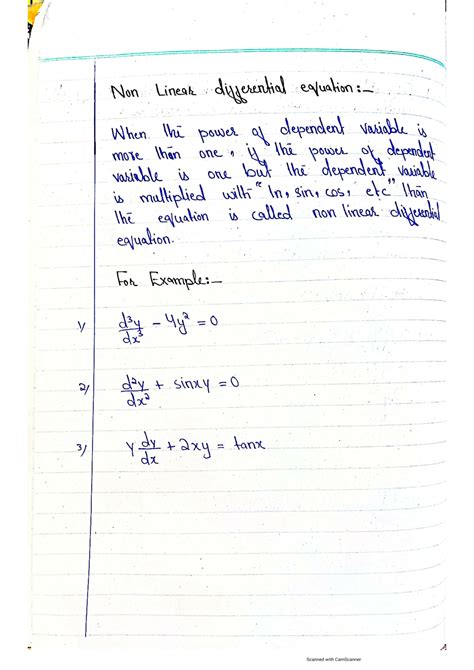 Non Linear differential equation:-
When the power of dependent variable is
more than one, if the power of dependent
variable is one but the dependent variable
is multiplied with "ln, sin, cos, etc" than
the equation is called non linear differential
equation.
For Example:-
1) d³y/dx³ - 4y² = 0
2) d²y/dx² + sinxy = 0
3) y dy/dx + 2xy = tanx
Scanned with CamScanner